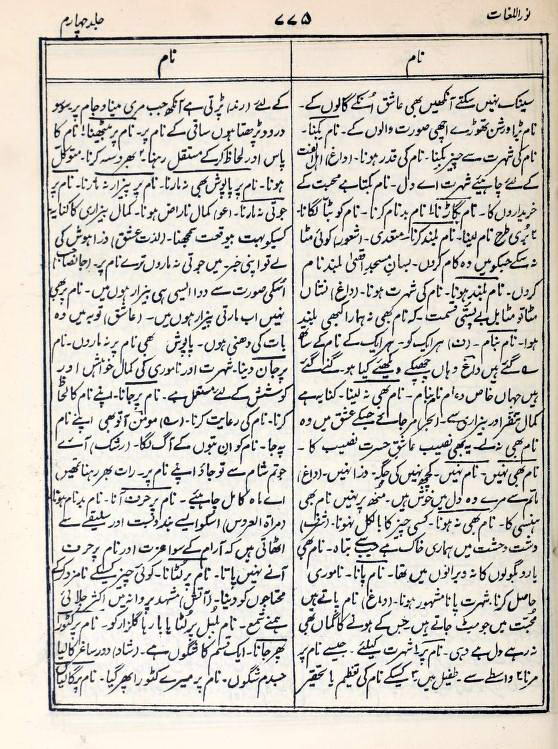 نور اللغات
۷۷۵
جلد چہارم
نام
سینک نہیں سکتے آنکھیں بھی عاشق اُنکے گالوں کے۔
نام بڑا درشن تھوڑے اچھی صورت والوں کے۔ نام بکنا۔
نام کی شہرت سے چیز بکنا۔ نام کی قدر ہونا۔ (داغ)
کے لئے چاہیئے شہرت اے دل۔ نام بکتا ہے محبت کے
خریداروں کا۔ نام بگاڑنا۔ نام بدنام کرنا۔ نام کو بٹا لگانا۔
بُری طرح نام لینا۔ نام بلند کرنا۔ متعدی۔ (شعور) کوئی مٹا
نہ سکے جسکو میں وہ کام کروں۔ بسان مسجد اقصیٰ بلند نام
کروں۔ نام بلند ہونا۔ نام کی شہرت ہونا۔ (داغ) نشاں
مٹا تو مٹا پر یہ پستی قسمت کہ نام بھی نہ ہمارا کبھی بلند
ہوا۔ نام بنام۔ (ف) ہر ایک کو۔ ہر ایک کے نام کے
گئے ہیں داغ وہاں چھپکے دیکھئے کیا ہو۔ گنے گئے
ہیں جہاں خاص و عام نام بنام۔ نام بھی نہ لینا۔ کنایہ ہے
کمال تنفر اور بیزاری سے۔ مر جائے جسکے عشق میں وہ
نام بھی نہ لے۔ یہ بھی نصیب عاشق حسرت نصیب کا۔
نام بھی نہیں۔ نام نہیں۔ کچھ نہیں کی جگہ۔ ذرا نہیں۔ (داغ)
مرے وہ دل میں خوش ہیں۔ منھ پر نہیں نام بھی
ہنسی کا۔ نام بھی نہ ہونا۔ کسی چیز کا بالکل نہونا۔
دشت وحشت میں ہماری خاک ہے جیسے تباہ۔ نام بھی
یارو بگولوں کا نہ ویرانوں میں تھا۔ نام پانا۔ ناموری
حاصل کرنا۔ شہرت پانا مشہور ہونا۔ (داغ) نام پاتے ہیں
محبت میں جو مٹ جاتے ہیں جس کے ہونے کا گماں بھی
نہ رہے دل ہے وہی۔ نام پر۔ شہرت کیلئے۔ جیسے نام پر
مرنا ۲ واسطے سے۔ طفیل میں ۳ کسیکے نام کی تعظیم یا تحقیر
نام
کے لئے (رند) پڑتی ہے آنکھ جب مری مینا و جام پر
درود پڑھتا ہوں ساقی کے نام پر۔ نام پر بیٹھنا۔ نام کا
پاس اور لحاظ کر کے مستقل رہنا۔ بھروسہ کرنا۔ متوکل
ہونا۔ نام پر پاپوش بھی نہ مارنا۔ نام پر پیزار نہ مارنا۔ نام پر
جوتی نہ مارنا۔ (عو) کمال ناراض ہونا۔ کمال بیزاری کا کنایہ
کسیکو بہت بیوقعت سمجھنا۔ (لذت عشق) ذرا ہوش کی
لے تو اپنی خبر۔ میں جوتی نہ ماروں ترے نام پر۔ (جانصاحب)
اُسکی صورت سے ددا ایسی ہی بیزار ہوں میں۔ نام پر بھی
نہیں اب مارتی پیزار ہوں میں۔ (عاشق) توبہ میں وہ
بات کی دھنی ہوں۔ پاپوش بھی نام پر نہ ماروں۔ نام
پر جان دینا۔ شہرت اور ناموری کی کمال خواہش اور
کوشش کے لئے مستعمل ہے۔ نام پر جانا۔ اپنے نام کا لحاظ
کرنا۔ نام کی رعایت کرنا۔ مومن آؤ بھی اپنے نام
پہ جا۔ نام کو ان بتوں کے آگ لگا۔ (رشک) آئے
جو تم شام سے تو جاؤ اپنے نام پر۔ رات بھر رہنا تمھیں
اے ماہ کامل چاہیئے۔ نام پر حرف آنا۔ نام بدنام ہونا
(مراۃ العروس) اسکو ایسے بندوبست اور سلیقے سے
اٹھاتی ہیں کہ آرام کے سوا عزت اور نام پر حرف
آنے نہیں پاتا۔ نام پر لٹانا۔ کوئی چیز کسیکے نامزد کر کے
محتاجوں کو دینا۔ شہد پروانہ میں اکثر جلائی
ہمنے شمع۔ نام بلبل پر لٹا یا بارہا گلزار کو۔ نام پر کٹورا
پھر جانا۔ ایک قسم کا شگون ہے۔ (شاد) دور ساغر کا لیا
جبدم شگوں۔ نام پر میرے کٹورا پھر گیا۔ نام پر گالیاں